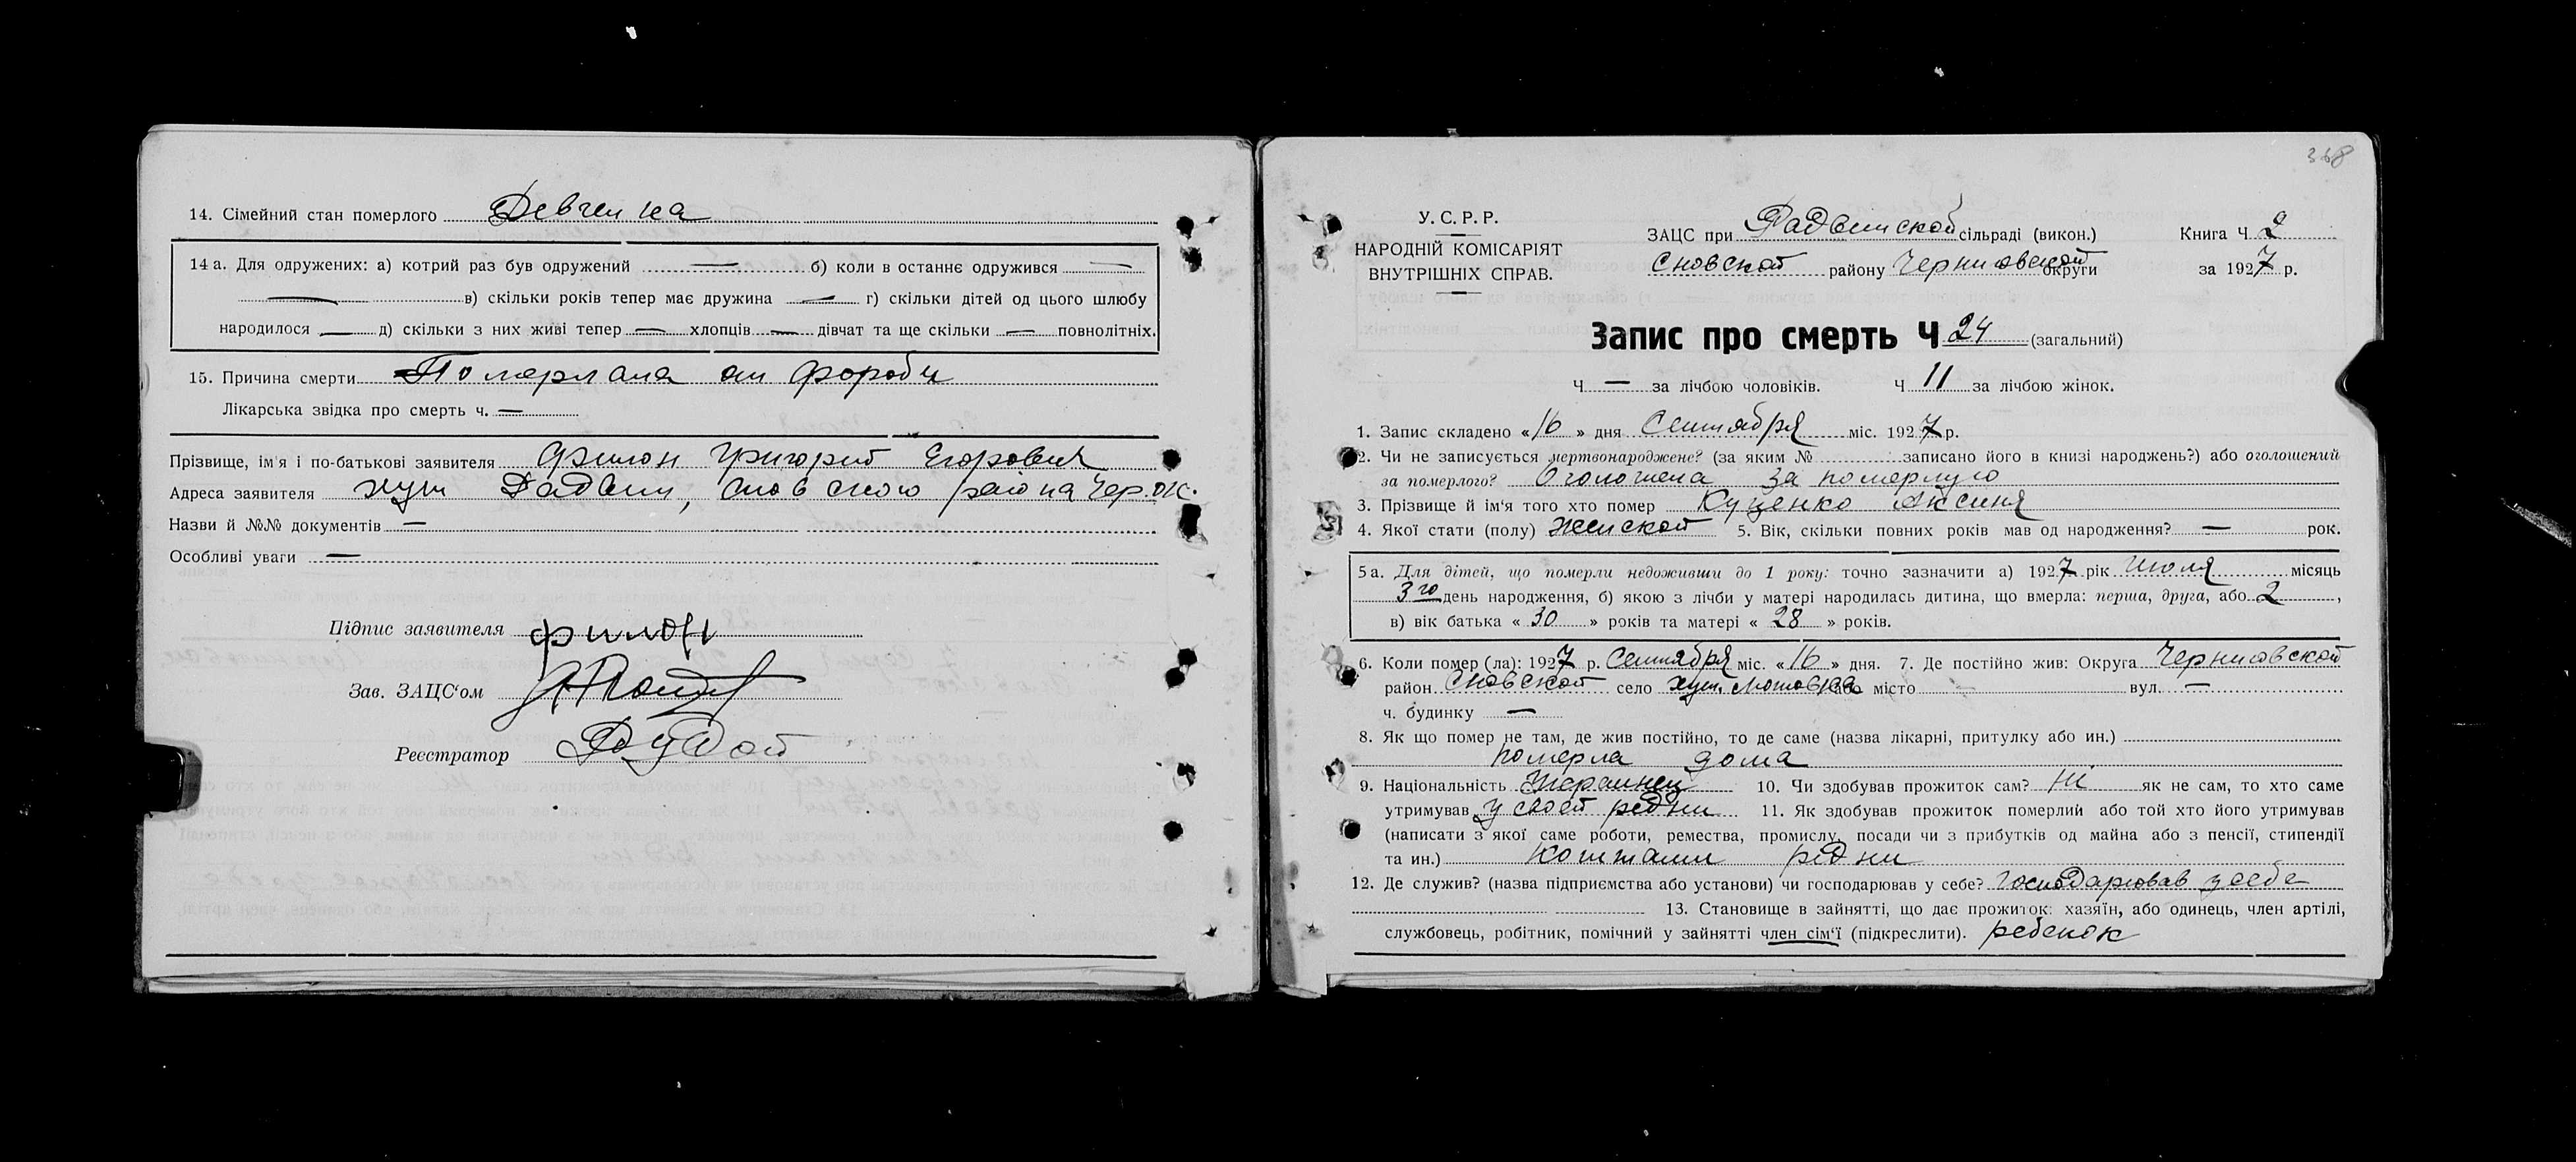 14. Сімейний стан померлого Девченка
14 а. Для одружених: а) котрий раз був одружений — б) коли в останнє одружився —
— в) скільки років тепер має дружина — г) скільки дітей од цього шлюбу
народилося — д) скільки з них живі тепер — хлопців — дівчат та ще скільки — повнолітніх.
15. Причина смерти Померлала от фороби
Лікарська звідка про смерть ч. —
Прізвище, ім'я і по-батькові заявителя Филон Григорий Егорович
Адреса заявителя хут Радвин, Сновского района Чер. ок.
Назви й №№ документів —
Особливі уваги —
Підпис заявителя филон
Зав. ЗАЦС'ом
Реєстратор
368
У. С. Р. Р.
НАРОДНІЙ КОМІСАРІЯТ
ВНУТРІШНІХ СПРАВ.
ЗАЦС при Радвинской сільраді (викон.) Книга Ч 2
Сновской району Черниговской округи за 1927 р.
Запис про смерть Ч 24 (загальний)
Ч — за лічбою чоловіків. Ч 11 за лічбою жінок.
1. Запис складено «16» дня Сентября міс. 1927 р.
2. Чи не записується мертвонароджене? (за яким № записано його в книзі народжень?) або оголошений
за померлого? Оголошена за померлую
3. Прізвище й ім'я того хто помер Куценко Аксиня
4. Якої стати (полу) женской 5. Вік, скільки повних років мав од народження? — рок.
5 а. Для дітей, що померли недоживши до 1 року: точно зазначити а) 1927 рік Июля місяць
3го день народження, б) якою з лічби у матері народилась дитина, що вмерла: перша, друга, або 2,
в) вік батька «30» років та матері «28» років.
6. Коли помер (ла): 1927 р. Сентября міс. «16» дня. 7. Де постійно жив: Округа Черниговской
район Сновской село хут. або місто — вул. —
ч. будинку —
8. Як що помер не там, де жив постійно, то де саме (назва лікарні, притулку або ин.)
померла дома
9. Національність Украинец 10. Чи здобував прожиток сам? Ні як не сам, то хто саме
утримував у своей рідни 11. Як здобував прожиток померлий або той хто його утримував
(написати з якої саме роботи, ремества, промислу, посади чи з прибутків од майна або з пенсії, стипендії
та ин.) коштами рідни
12. Де служив? (назва підприємства або установи) чи господарював у себе? господарював у себе
13. Становище в зайнятті, що дає прожиток: хазяїн, або одинець, член артілі,
службовець, робітник, помічний у зайнятті член сім'ї (підкреслити). ребенок